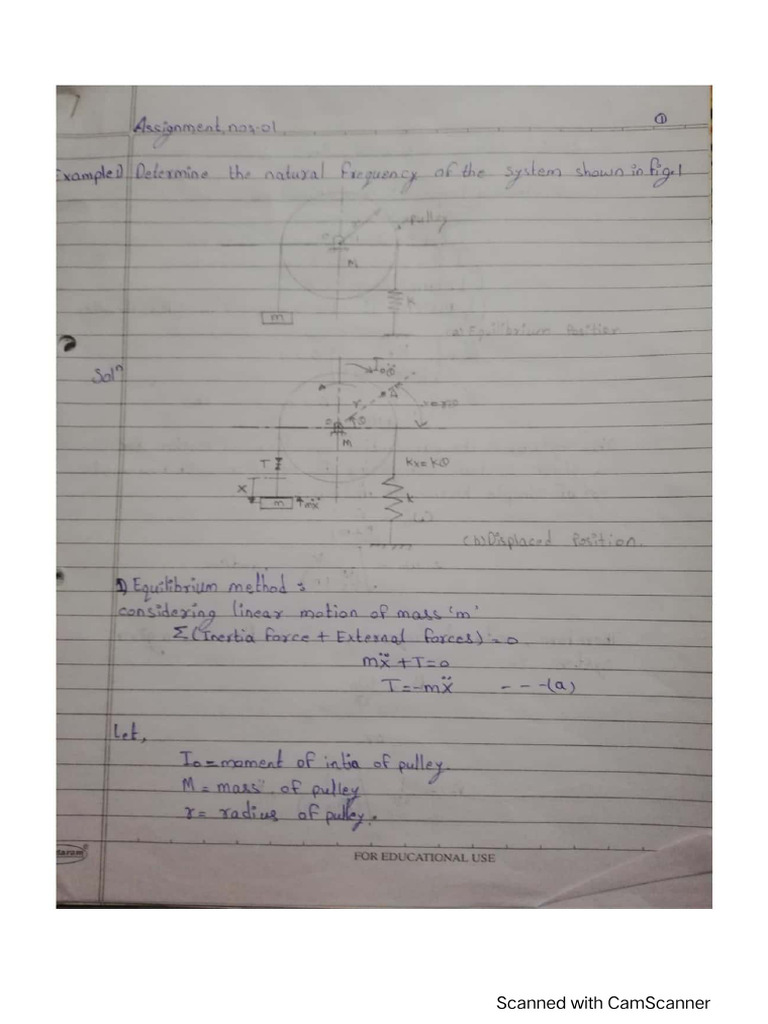 Assignment, nos-01
①
Example 1) Determine the natural frequency of the system shown in fig.1
Pulley
M
K
m
(a) Equilibrium Position
Solⁿ
I₀θ̈
A
r
θ
= rθ
M
T
Kx = Kθ
X
K
m
mẍ
(b) Displaced Position.
1) Equilibrium method :
considering linear motion of mass 'm'
Σ(Inertia force + External forces) = 0
mẍ + T = 0
T = -mẍ - - -(a)
Let,
I₀ = moment of intia of pulley.
M = mass of pulley
r = radius of pulley.
FOR EDUCATIONAL USE
Scanned with CamScanner